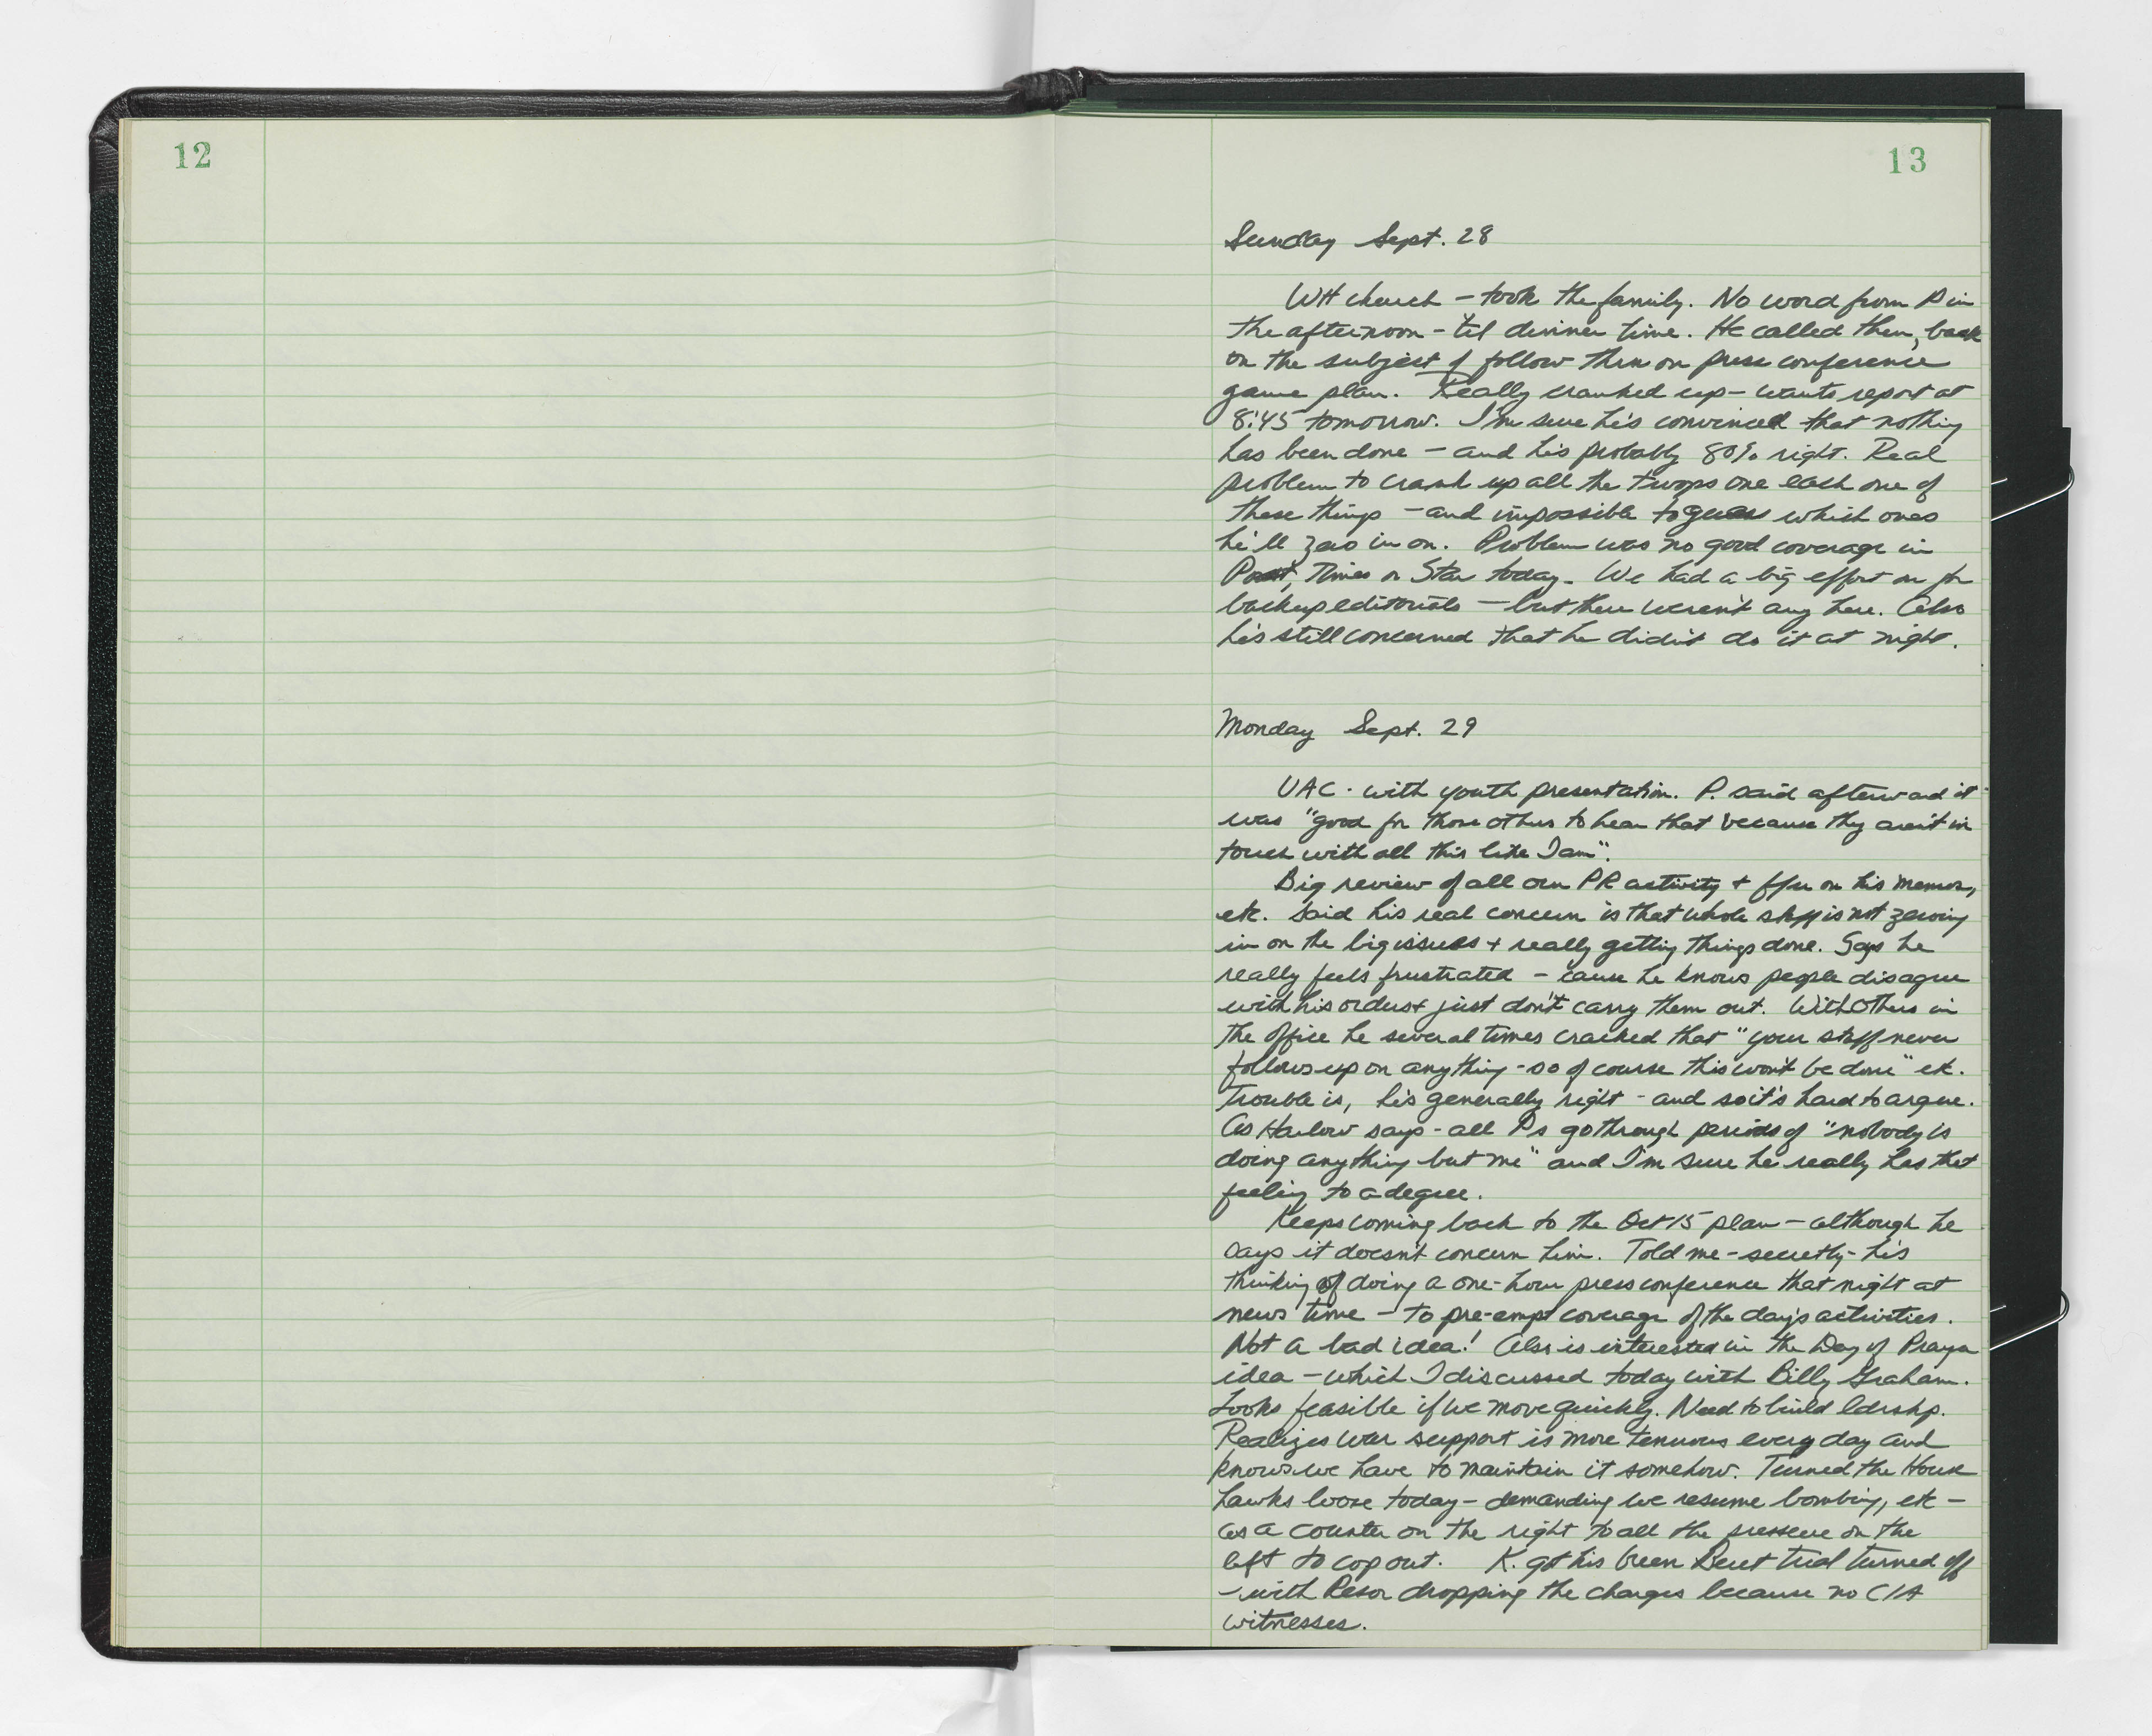 12
13
Sunday Sept. 28
WH church - took the family. No word from P in
the afternoon - 'til dinner time. He called then, back
on the subject of follow thru on press conference
game plan. Really cranked up - wants report at
8:45 tomorrow. I'm sure he's convinced that nothing
has been done - and he's probably 80% right. Real
problem to crank up all the troops one each one of
these things - and impossible to guess which ones
he'll zero in on. Problem was no good coverage in
Post, Times or Star today. We had a big effort on for
backup editorials - but there weren't any here. Also
he's still concerned that he didn't do it at night.
Monday Sept. 29
UAC - with youth presentation. P. said afterward it
was "good for those others to hear that because they aren't in
touch with all this like I am".
Big review of all our PR activity + ffu on his memos,
etc. Said his real concern is that whole staff is not zeroing
in on the big issues + really getting things done. Says he
really feels frustrated - 'cause he knows people disagree
with his orders + just don't carry them out. With others in
the office he several times cracked that "your staff never
follows up on anything - so of course this won't be done" etc.
Trouble is, he's generally right - and so it's hard to argue.
As Harlow says - all Ps go through periods of "nobody is
doing anything but me" and I'm sure he really has that
feeling to a degree.
Keeps coming back to the Oct 15 plan - although he
says it doesn't concern him. Told me - secretly - he's
thinking of doing a one-hour press conference that night at
news time - to pre-empt coverage of the day's activities.
Not a bad idea! Also is interested in the Day of Prayer
idea - which I discussed today with Billy Graham.
Looks feasible if we move quickly. Need to build ldrshp.
Realizes war support is more tenuous every day and
knows we have to maintain it somehow. Turned the House
hawks loose today - demanding we resume bombing, etc -
as a counter on the right to all the pressure on the
left to cop out. K. got his Green Beret trial turned off
- with Resor dropping the charges because no CIA
witnesses.